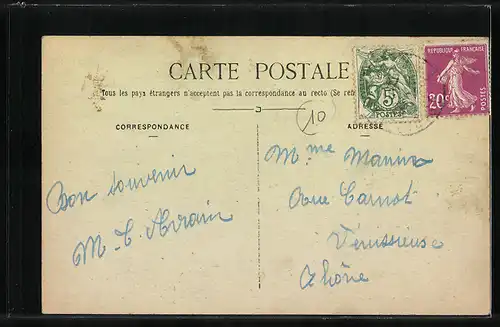 CARTE POSTALE
Tous les pays étrangers n'acceptent pas la correspondance au recto (Se ren
CORRESPONDANCE
ADRESSE
10
5
POSTES
REPUBLIQUE FRANÇAISE
20c
POSTES
Bon souvenir
Mme
Rue Carnot
Vénissieux
Rhône